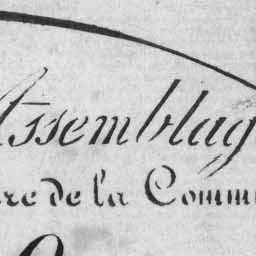 Assemblag
re de la Comm